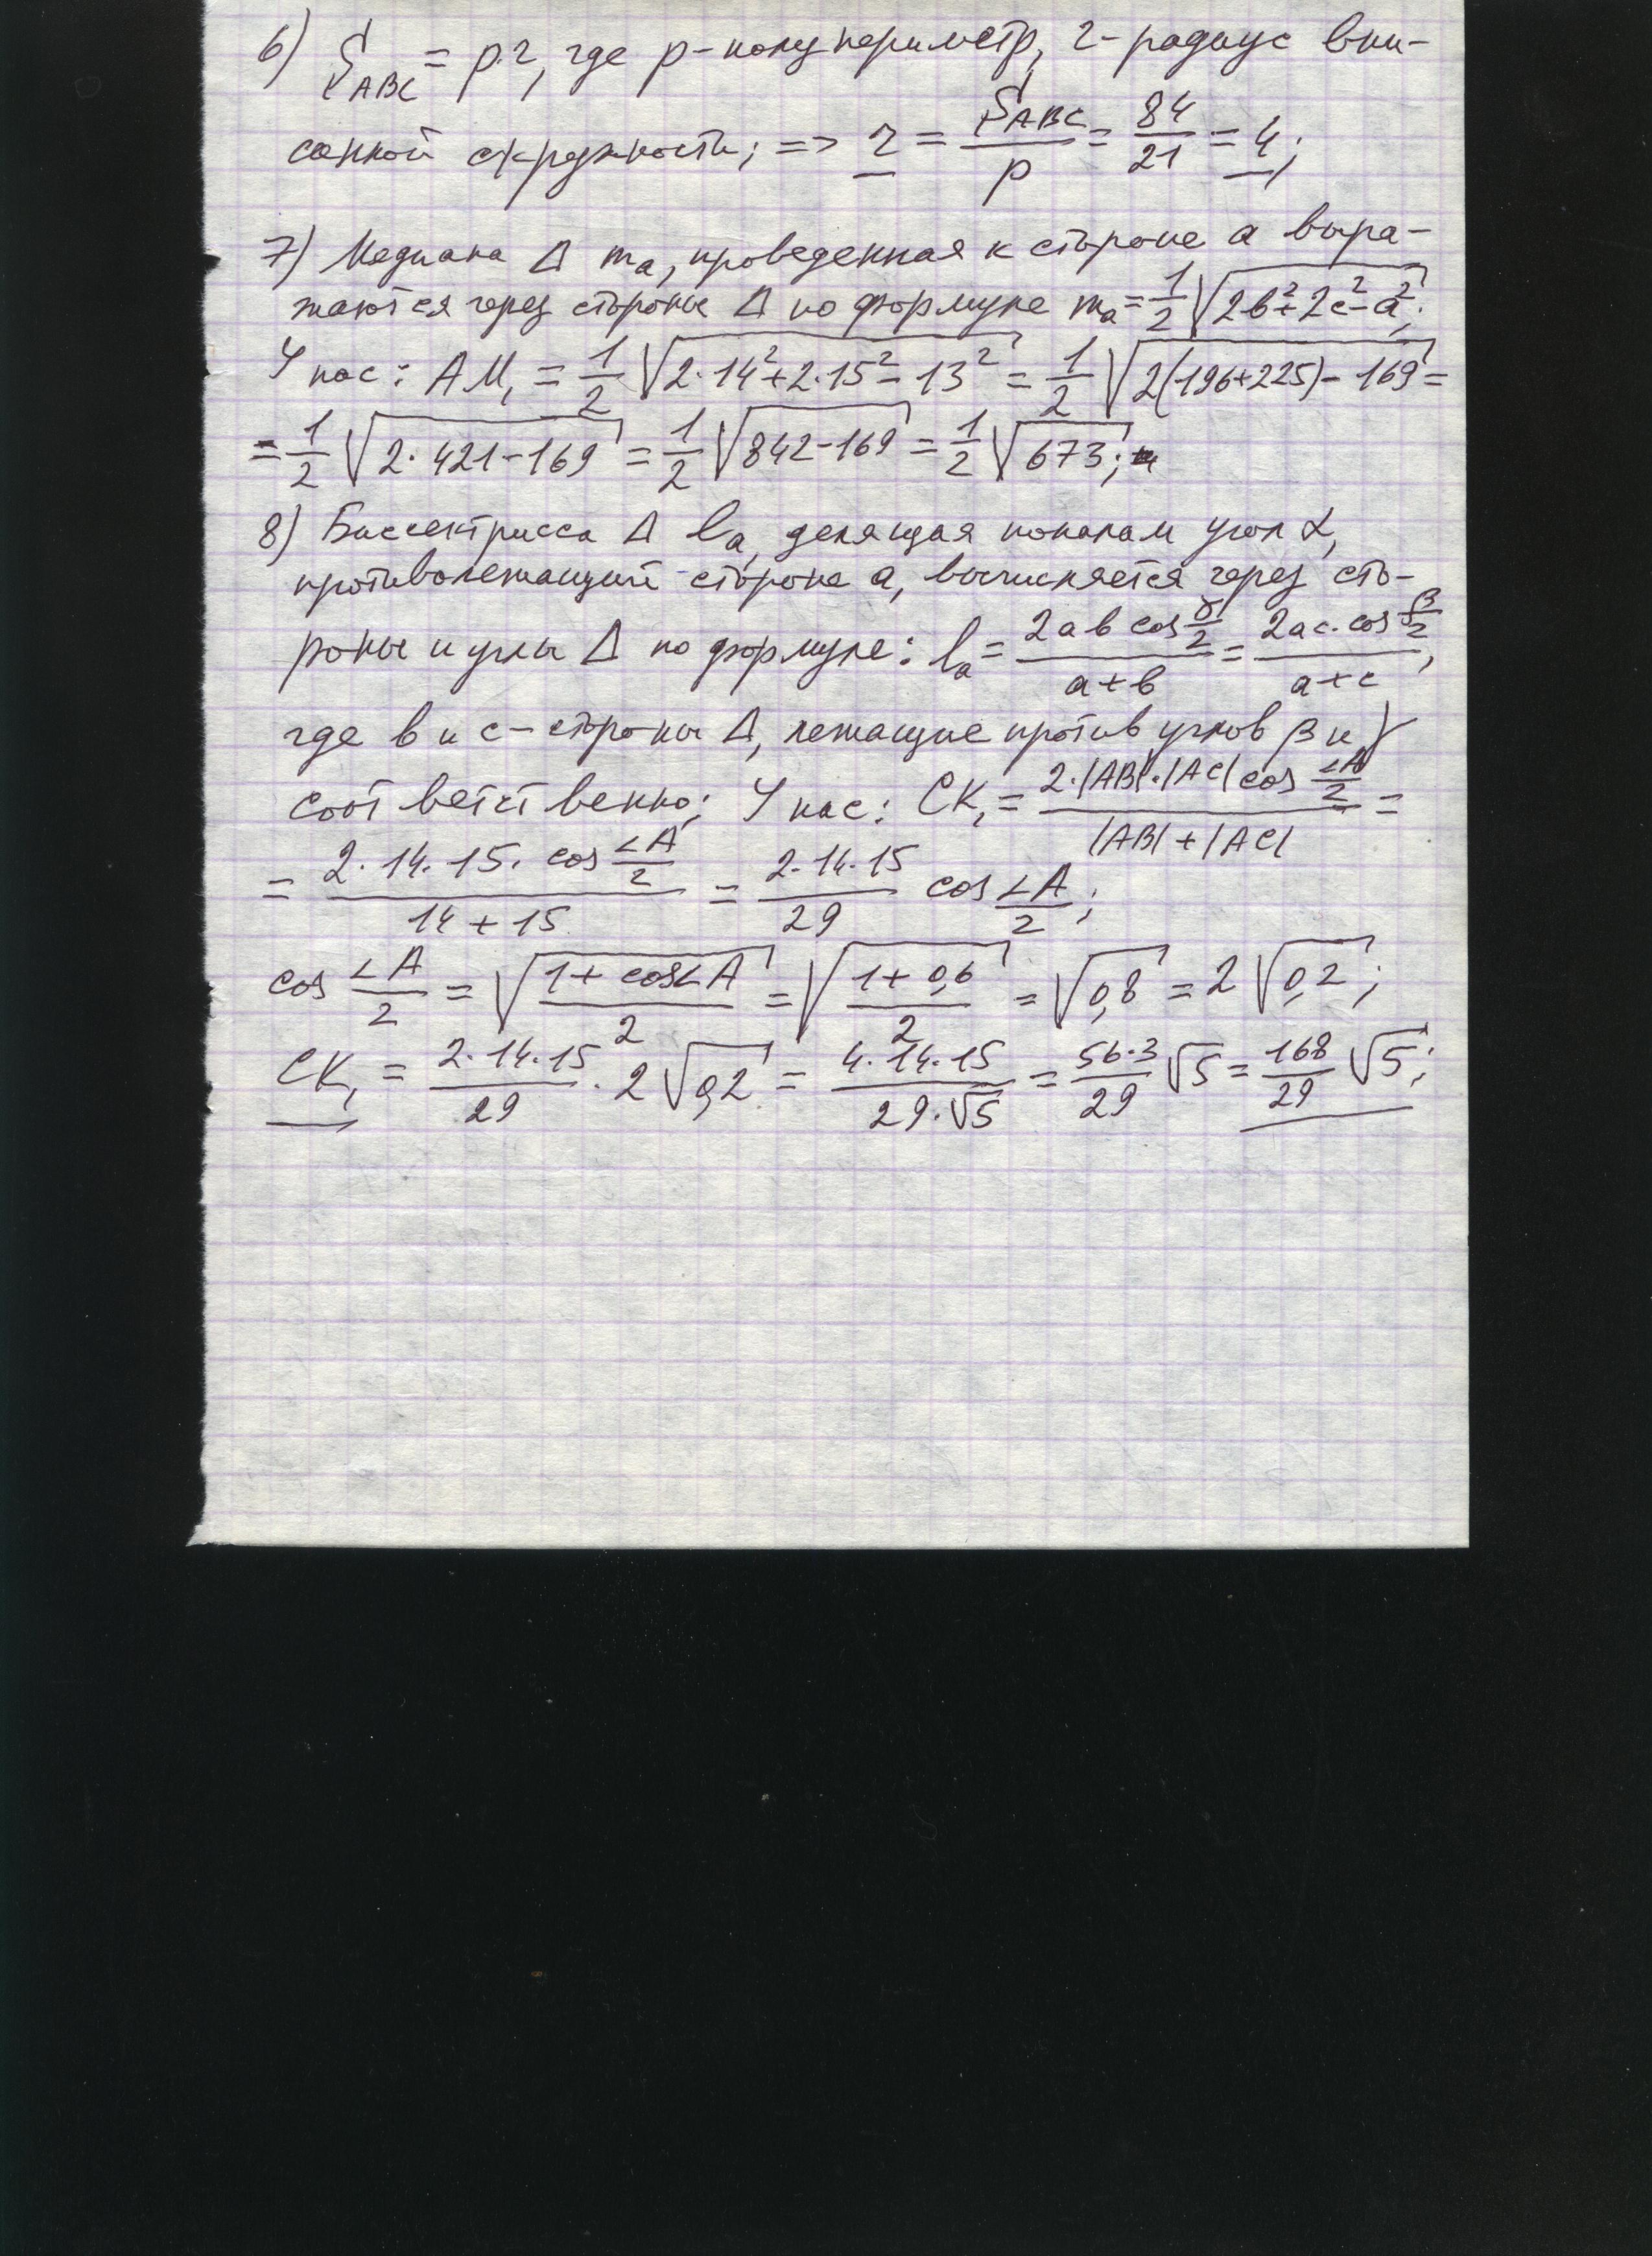 6) S_ABC = p·r, где p-полупериметр, r-радиус впи-
санной окружности; => r = S_ABC/p = 84/21 = 4;
7) Медиана Δ m_a, проведенная к стороне a выра-
жаются через стороны Δ по формуле m_a = 1/2 √(2b²+2c²-a²);
У нас: AM₁ = 1/2 √(2·14²+2·15²-13²) = 1/2 √(2(196+225)-169) =
= 1/2 √(2·421-169) = 1/2 √(842-169) = 1/2 √673;
8) Биссектрисса Δ l_a, делящая пополам угол α,
противолежащий стороне a, вычисляется через сто-
роны и углы Δ по формуле: l_a = 2ab cos γ/2 / (a+b) = 2ac·cos β/2 / (a+c),
где b и c - стороны Δ, лежащие против углов β и γ
соответственно; У нас: CK₁ = 2·|AB|·|AC| cos ∠A/2 / (|AB|+|AC|) =
= 2·14·15·cos ∠A/2 / (14+15) = 2·14·15/29 cos ∠A/2;
cos ∠A/2 = √((1+cos∠A)/2) = √((1+0,6)/2) = √0,8 = 2√0,2;
CK₁ = 2·14·15/29 · 2√0,2 = 4·14·15/(29·√5) = 56·3/29 √5 = 168/29 √5;